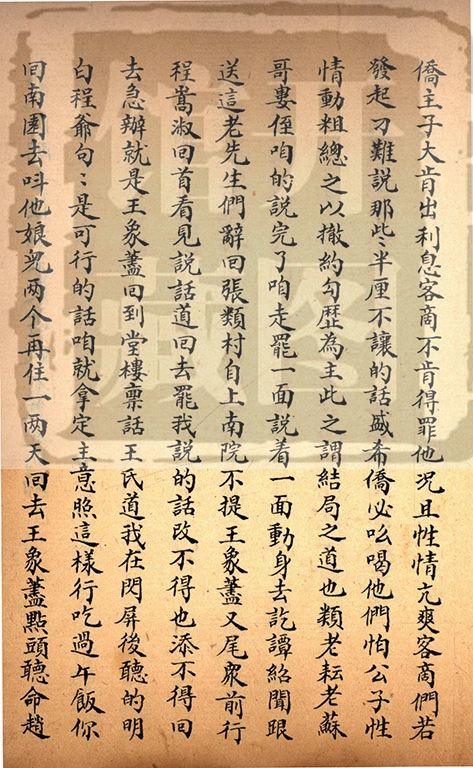 僑主子大肯出利息客商不肯得罪他况且性情亢爽客商們若
發起刁難說那些半厘不讓的話盛希僑必吆喝他們怕公子性
情動粗總之以撤約勾歷為主此之謂結局之道也類老耘老蘇
哥婁侄咱的說完了咱走罷一面說着一面動身去訖譚紹聞跟
送這老先生們辭回張類村自上南院不提王象藎又尾衆前行
程嵩淑回首看見說話道回去罷我說的話改不得也添不得回
去急辦就是王象藎回到堂樓禀話王氏道我在閃屏後聽的明
白程爺句〻是可行的話咱就拿定主意照這樣行吃過午飯你
回南園去呌他娘兒两个再住一两天回去王象藎點頭聽命趙